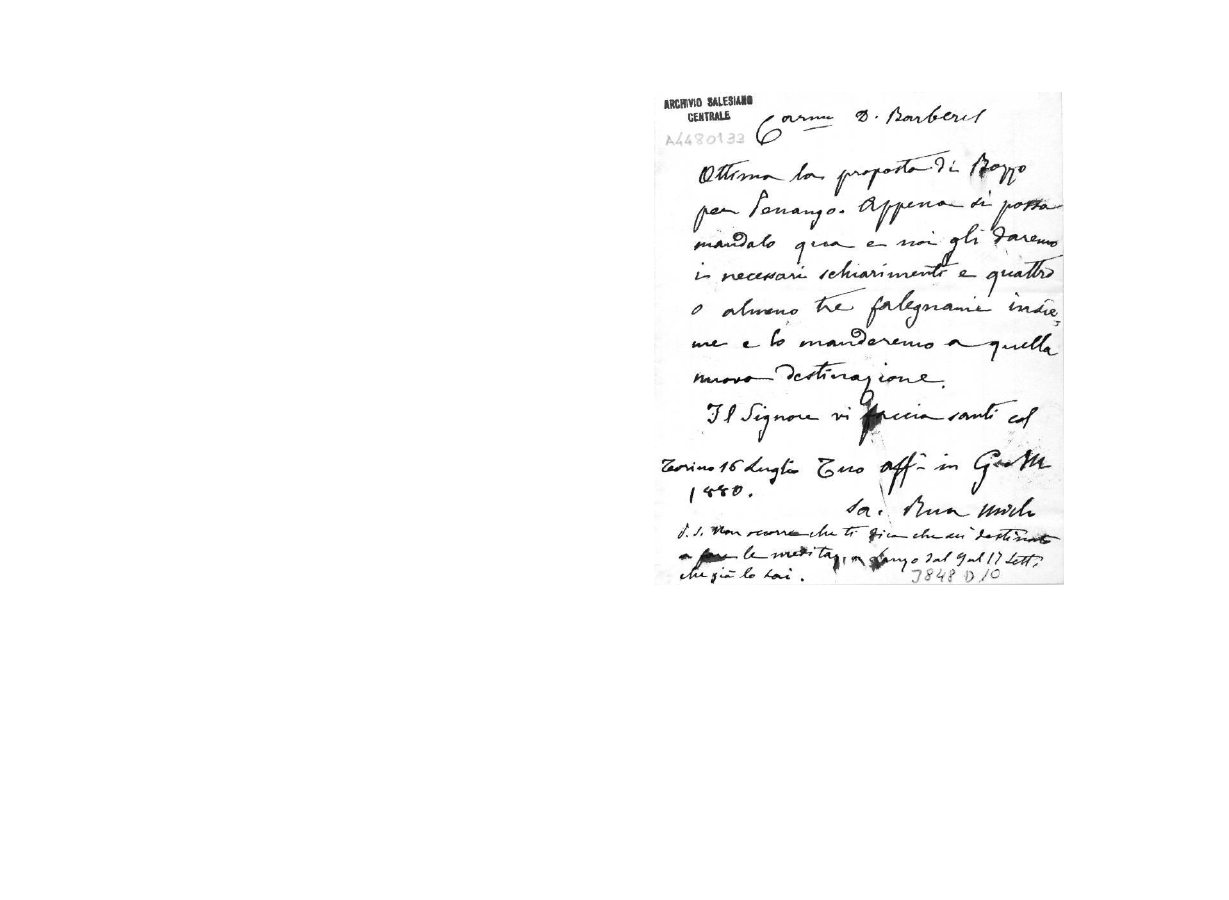 ARCHIVIO SALESIANO
CENTRALE
A4480133
Carmo D. Barberis
Ottima la proposta di Bozzo
per Penango. Appena si possa
mandalo qua e noi gli daremo
i necessari schiarimenti e quattro
o almeno tre falegnami insie-
me e lo manderemo a quella
nuova destinazione.
Il Signore vi faccia santi col
Torino 16 Luglio Tuo aff in G e M
1880.
Sa. Rua Mich
P. S. Non occorre che ti dica che sei destinato
a fare le meditaz. a Lanzo dal 9 al 17 Sett.
che già lo sai.
3848 D 10